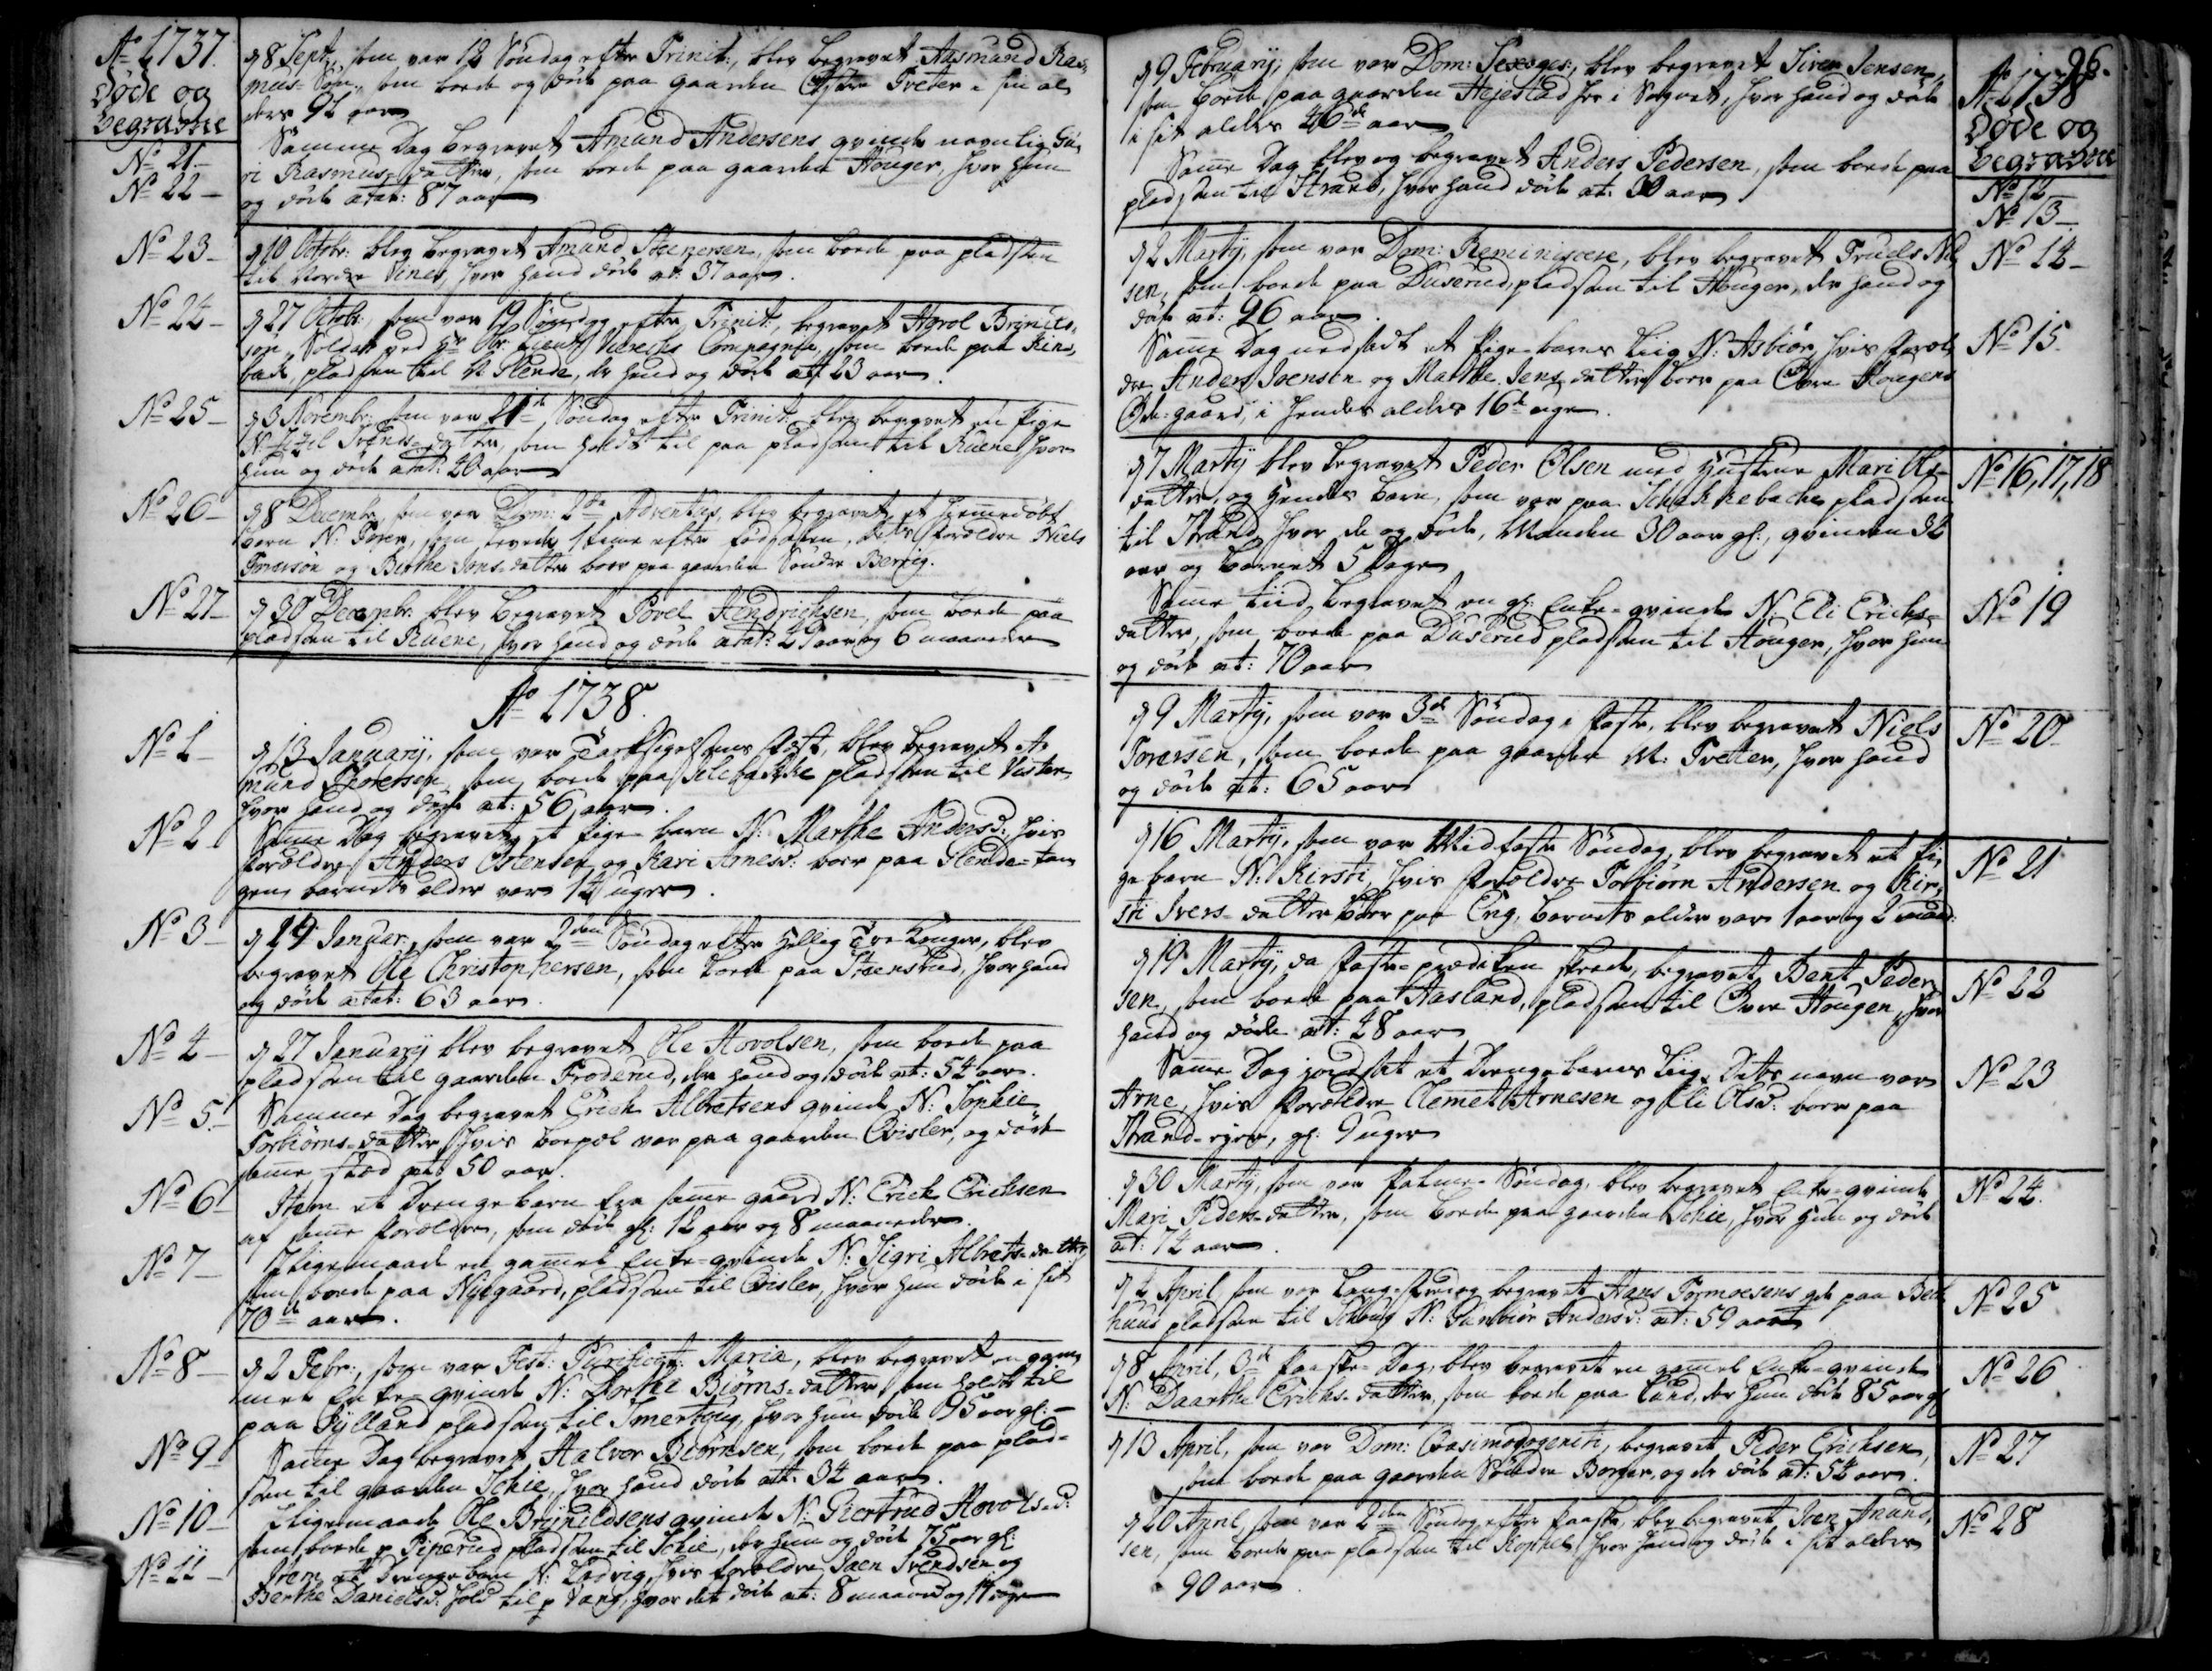 Ao 1737.
Døde og
begrafne
No 21
d 8 Sept, som var 12 Søndag efter Trinit:, blev begravet Aasmund Ras-
mus-Søn, som boede og døde paa gaarden Tveter i sin al-
ders 92 aar
No 22
Samme Dag begravet Amund Andersens qvinde navnlig Gu-
ri Rasmus-datter, som boede paa gaarden Houger, hvor hun
og døde ætat: 87 aar
No 23
d 10 Octobr: blev begravet Amund Steenersen, som boede paa pladsen
til Nordre Vines, hvor hand døde æt: 57 aar.
No 24
d 27 Octobr:, som var 19 Søndag efter Trinit:, begravet Hovol Brinils-
søn, Soldat ved Hr Compagnie, som boede paa
bach, pladsen til N Slende, der hand og døde æt 23 aar.
No 25
d 3 Novembr: som var 21de Søndag efter Trinit: blev begravet en Pige
N: Sidzel Svends-datter, som holdt til paa pladsen til Ruene hvor
hun og døde ætat: 40 aar
No 26
d 8 Decembr, som var Dom: 2da Adventus, blev begravet et hjemmedøbt
barn N: Torer, som levede 1 time efter fødselen, dets forældre Niels
Torersøn og Birthe Jons-datter boer paa gaarden Søndre Berrig.
No 27
d 30 Decembr: blev begravet Povel Hendrichsen, som boede paa
pladsen til Ruene, hvor hand og døde ætat: 29 aar og 6 maaneder
Ao 1738.
No 1
d 13 Januarij, som var Taksigelsens Fest, blev begravet A-
mund, som boede paa pladsen til
hvor hand og døde æt: 56 aar.
No 2
Samme Dag begravet et Pige-barn N: Marthe Andersd: hvis
forældre Anders Ostensen og Kari Arnesd: boer paa Slende-
gen, barnets alder var 14 uger.
No 3
d 29 Januar:, som var 2den Søndag efter Hellig Tre Konger, blev
begravet Ole Christophersen, som boede paa Steensrud, hvor hand
og døde ætat: 63 aar.
No 4
d 27 Januarij blev begravet Ole Hovolsen, som boede paa
pladsen til gaarden Froderud, der hand og døde æt: 54 aar.
No 5
Samme Dag begravet Erich Albretsens qvinde N: Sophie
Torbiørns-datter, hvis boepæl var paa gaarden Qvisler, og døde
samme stæd æt: 50 aar.
No 6
Item et Drengebarn fra samme gaard N: Erich Erichsen
af samme forældre, som døde gl: 12 aar og 8 maaneder.
No 7
Ligemaade en gammel Enke-qvinde N: Sigri Albrets-datter,
som boede paa Nyegaard, pladsen til Qvisler, hvor hun døde i sit
70de aar.
No 8
d 2 Febr:, som var Fest: Purificat: Mariæ, blev begravet en gam-
mel Enke-qvinde N: Dorthe Biørns-datter, som holdt til
paa Rylland pladsen til Smertoug, hvor hun døde 95 aar gl:
No 9
Samme Dag begravet Halvor Biørnsen, som boede paa plad-
sen til gaarden Schie, hvor hand døde æt: 34 aar.
No 10
Ligemaade Ole Brynildsens qvinde N: Giertrud Hovolsd:
som boede p Piperud pladsen til Schie, der hun og døde 75 aar gl:
No 11
Item et Drengebarn N: Ludvig, hvis forældre Joen Svendsen og
Berthe Danielsd: hold til p Vang, hvor det døde æt: 8 maaned og 14 dage
96.
Ao 1738
Døde og
begrafne
No 12
d 9 Februarij, som var Dom: Sexages:, blev begravet Siver Jensen,
som boede paa gaarden Hejestad her i Sognet, hvor hand og døde
i sit alders 46de aar
No 13
Samme Dag blev og begravet Anders Pedersen, som boede paa
pladsen til Strand, hvor hand døde æt: 30 aar
No 14
d 2 Martij, som var Dom: Reminiscere, blev begravet Truels Nil-
sen, som boede paa Duserud, pladsen til Houger, der hand og
døde æt: 96 aar.
No 15
Samme Dag nedsadt et Pige-barns Liig N: Asbiør, hvis foræl-
dre Anders Joensen og Marthe Jens-datter boer paa Øvre Hougens
Øde-gaard, i hendes alders 16de uge.
No 16, 17, 18
d 7 Martij blev begravet Peder Olsen med Hustrue Mari Ols-
datter, og hendes barn, som var paa Schakkebache pladsen
til Strand, hvor de og døde, Manden 30 aar gl:, qvinden 32
aar og barnet 5 Dage
No 19
Samme tiid begravet en gl: Enke-qvinde N: Eli Erichs-
datter, som boede paa Duserud pladsen til Houger, hvor hun
og døde æt: 70 aar
No 20
d 9 Martij, som var 3de Søndag i Faste, blev begravet Niels
Torersen, som boede paa gaarden M: Tveter, hvor hand
og døde æt: 65 aar
No 21
d 16 Martij, som var Midfaste Søndag, blev begravet et Pi-
ge barn N: Kirsti, hvis forældre Torbiørn Andersen og Kir-
sti Ivers-datter boer paa Eng, barnets alder var 1 aar og 2 maan:
No 22
d 19 Martij, da Faste-prædiken skeede, begravet Bent Peder-
sen, som boede paa Aasland, pladsen til Øvre Hougen, hvor
hand og døde æt: 48 aar
No 23
Samme Dag jordsat et Drengebarns Liig, Dets navn var
Arne, hvis forældre Clemet Arnesen og Eli Olsd: boer paa
Strand-ejer, gl: 9 uger
No 24.
d 30 Martij, som var Palme-Søndag, blev begravet Enke-qvinde
Mari Peders-datter, som boede paa gaarden Schie, hvor hun og døde
æt: 74 aar.
No 25
d 4 April, som var Lang-Fredag begravet Hans Tormoesens qv: paa Bek-
huus pladsen til Schoug N: Gunbiør Andersd: æt: 59 aar
No 26
d 8 April, 3de Paaske-Dag, blev begravet en gammel Enke-qvinde
N: Daarthe Erichs-datter, som boede paa Lund, der hun døde 85 aar gl
No 27
d 13 April, som var Dom: Qvasimodogeniti, begravet Peder Erichsen,
som boede paa gaarden Søndre Borger, og der døde æt: 54 aar.
No 28
d 20 April, som var 2den Søndag efter Paaske, blev begravet Iver Amund-
sen, som boede paa pladsen til Kophel, hvor hand og døde i sit alders
90 aar.